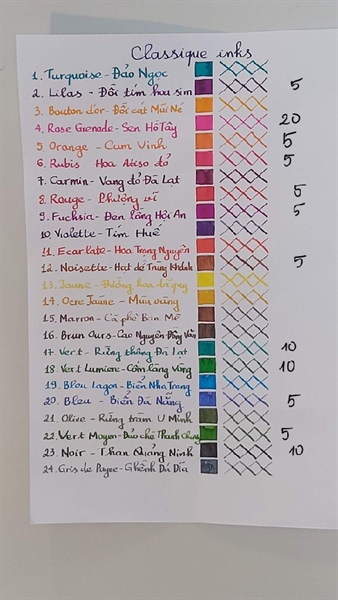 Classique inks
1. Turquoise - Đảo Ngọc
2. Lilas - Đồi tím hoa sim 5
3. Bouton d'or - Đồi cát Mũi Né
4. Rose Grenade - Sen Hồ Tây 20
5 Orange - Cam Vinh 5
6. Rubis Hoa Atiso đỏ 5
7. Carmin - Vang đỏ Đà Lạt
8. Rouge - Phượng vĩ 5
9. Fuchsia - Đèn lồng Hội An 5
10. Violette - Tím Huế
11. Ecarlate - Hoa Trạng Nguyên
12. Noisette - Hạt dẻ Trùng Khánh 5
13. Jaune - Đường hoa dã quỳ
14. Ocre Jaune - Mùa vàng
15. Marron - Cà phê Ban Mê
16. Brun Ours - Cao Nguyên Đồng Văn
17. Vert - Rừng thông Đà Lạt 10
18. Vert Lumiere - Cốm làng Vòng 10
19. Bleu Lagon - Biển Nha Trang
20. Bleu - Biển Đà Nẵng 5
21. Olive - Rừng tràm U Minh
22. Vert Moyen - Đảo chè Thanh Chương 5
23. Noir - Than Quảng Ninh 10
24. Gris de Payne - Ghềnh Đá Dĩa